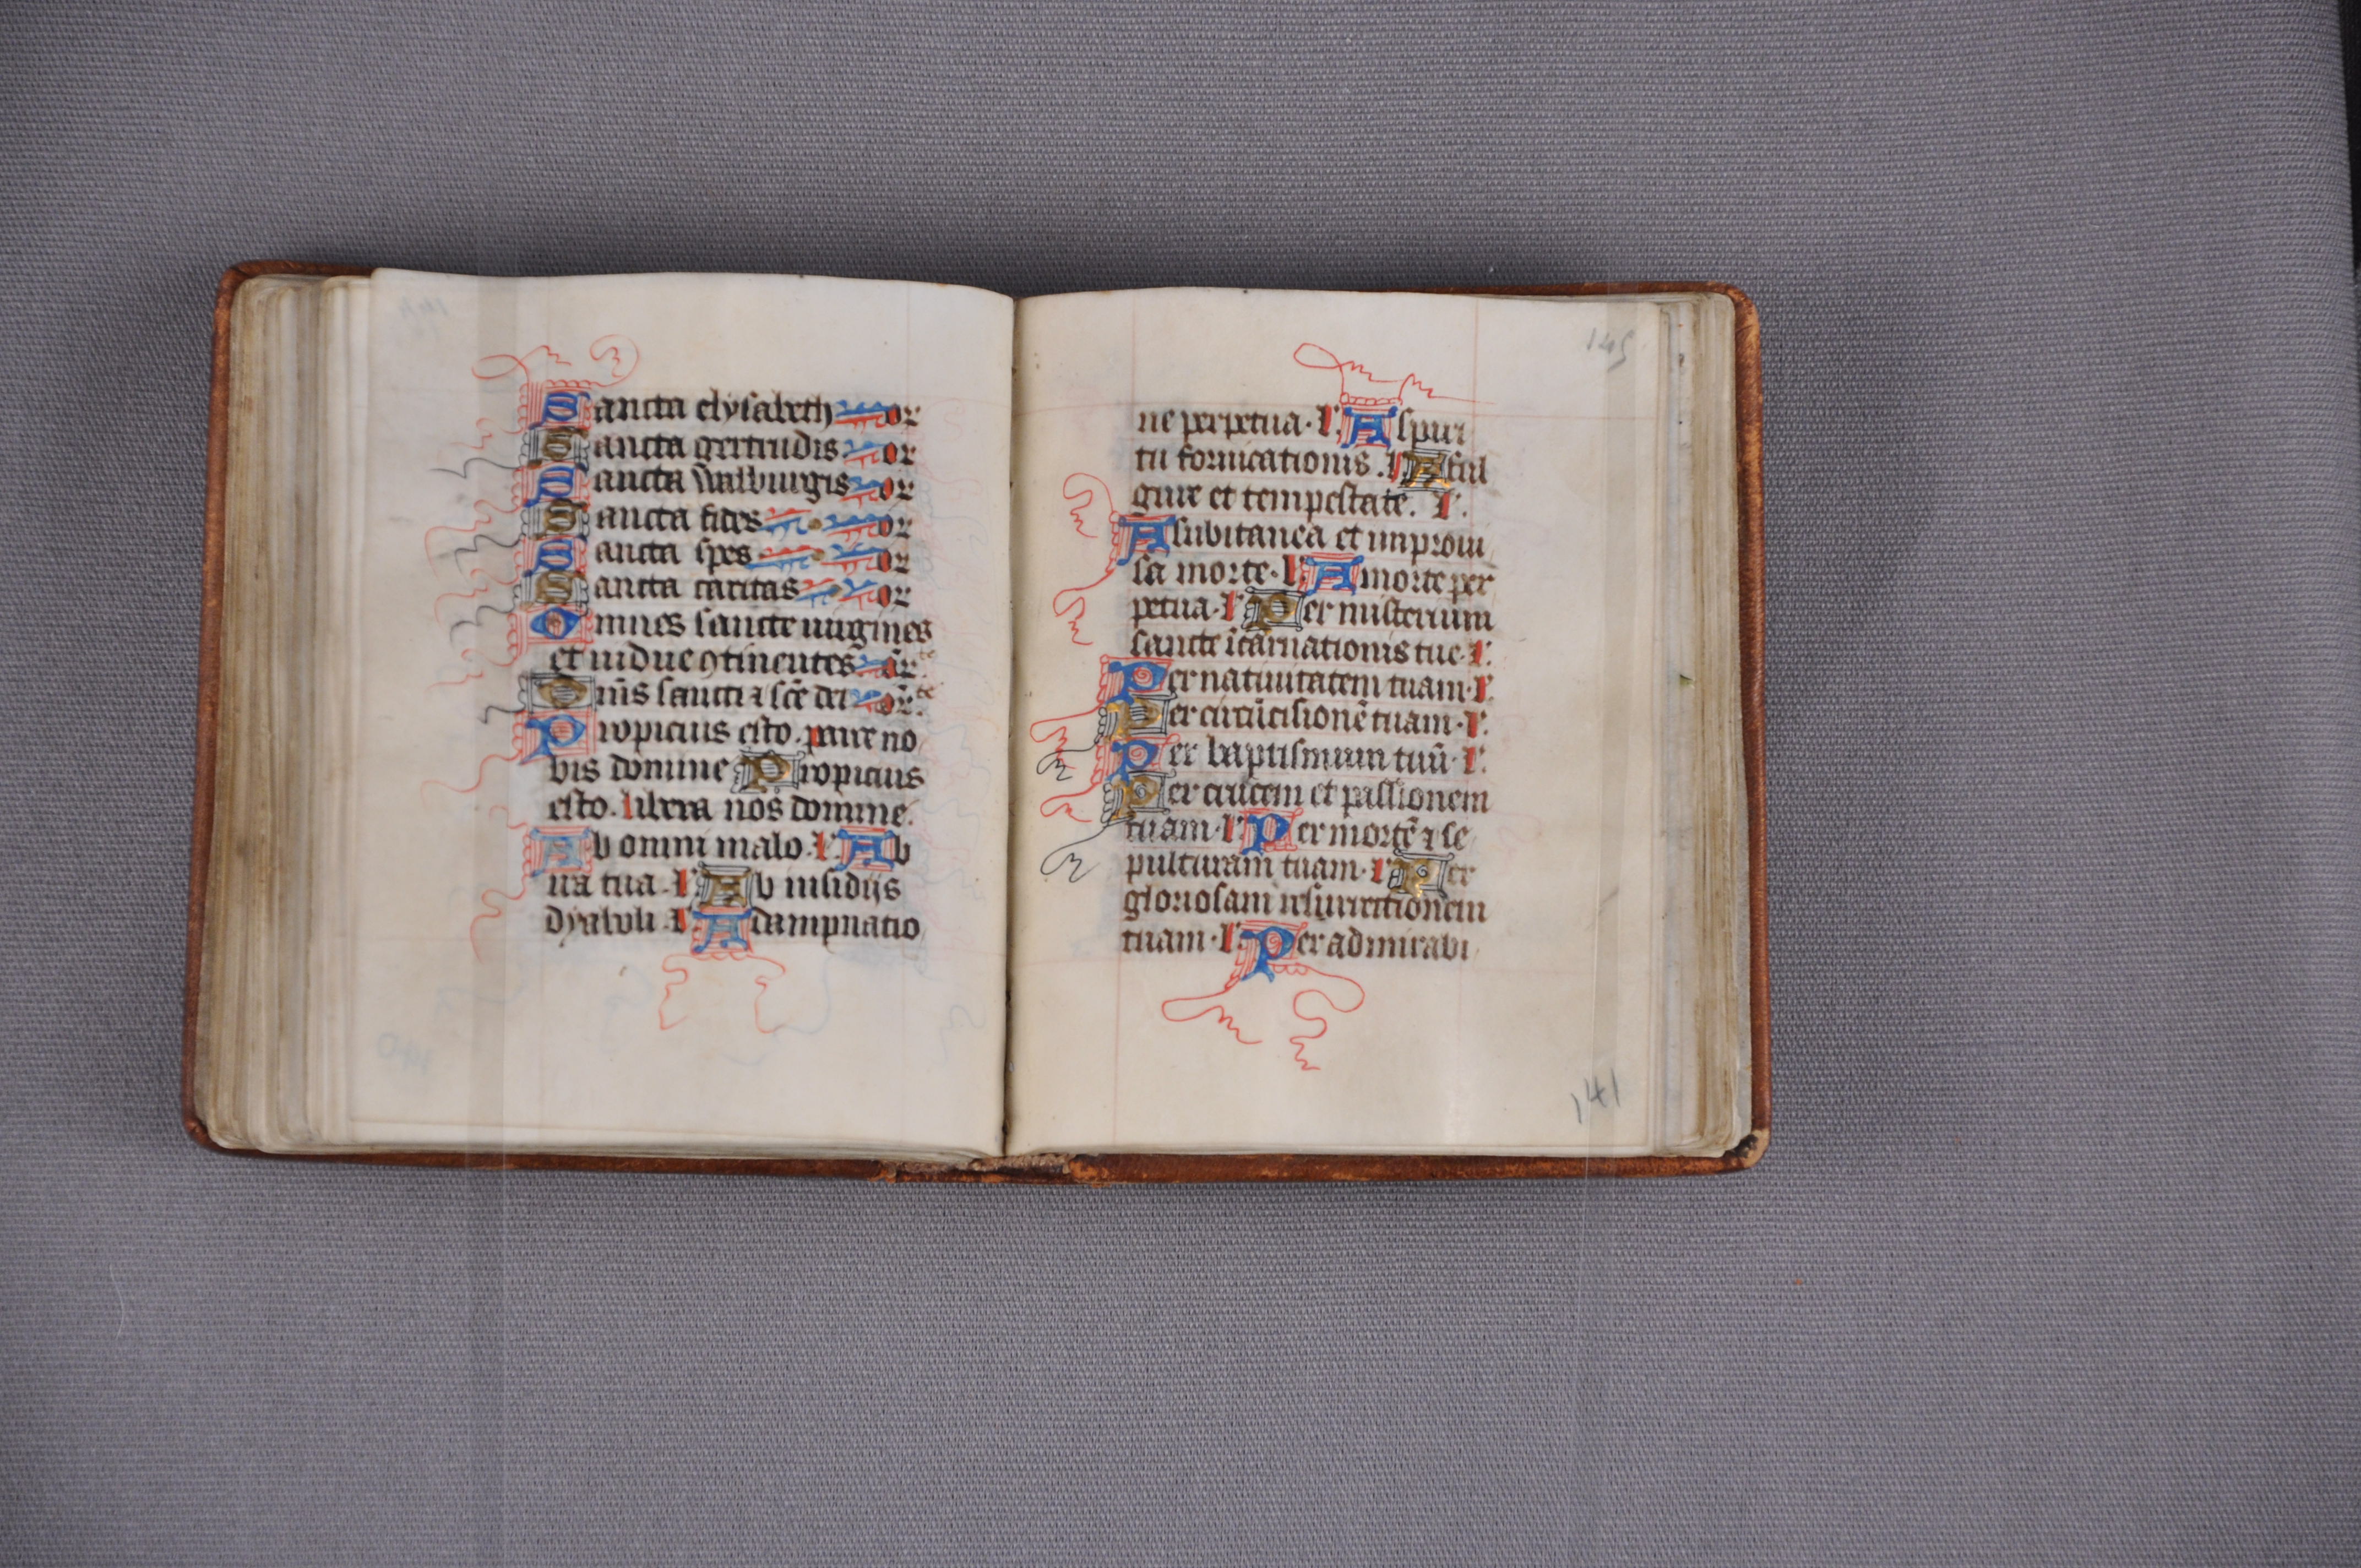 Sancta elysabeth or
Sancta gertrudis or
Sancta walburgis or
Sancta fides or
Sancta spes or
Sancta caritas or
Omnes sancte uirgines
et uidue ꝯtinentes or̄te
Om̄s sancti ⁊ sc̄e dei or̄te
Propicius esto. parce no
bis domine Propicius
esto. libera nos domine.
Ab omni malo. l'. Ab
ira tua. l'. Ab insidijs
dyaboli. l'. A dampnatio
145
ne perpetua. l'. A spiri
tu fornicationis. l'. A ful
gure et tempestate. l'.
A subitanea et improui
sa morte. l'. A morte per
petua. l'. Per misterium
sancte īcarnationis tue. l'.
Per natiuitatem tuam. l'.
Per circūcisionē tuam. l'.
Per baptismum tuū. l'.
Per crucem et passionem
tuam. l'. Per mortē ⁊ se
pulturam tuam. l'. Per
gloriosam resurrectionem
tuam. l'. Per admirabi
141